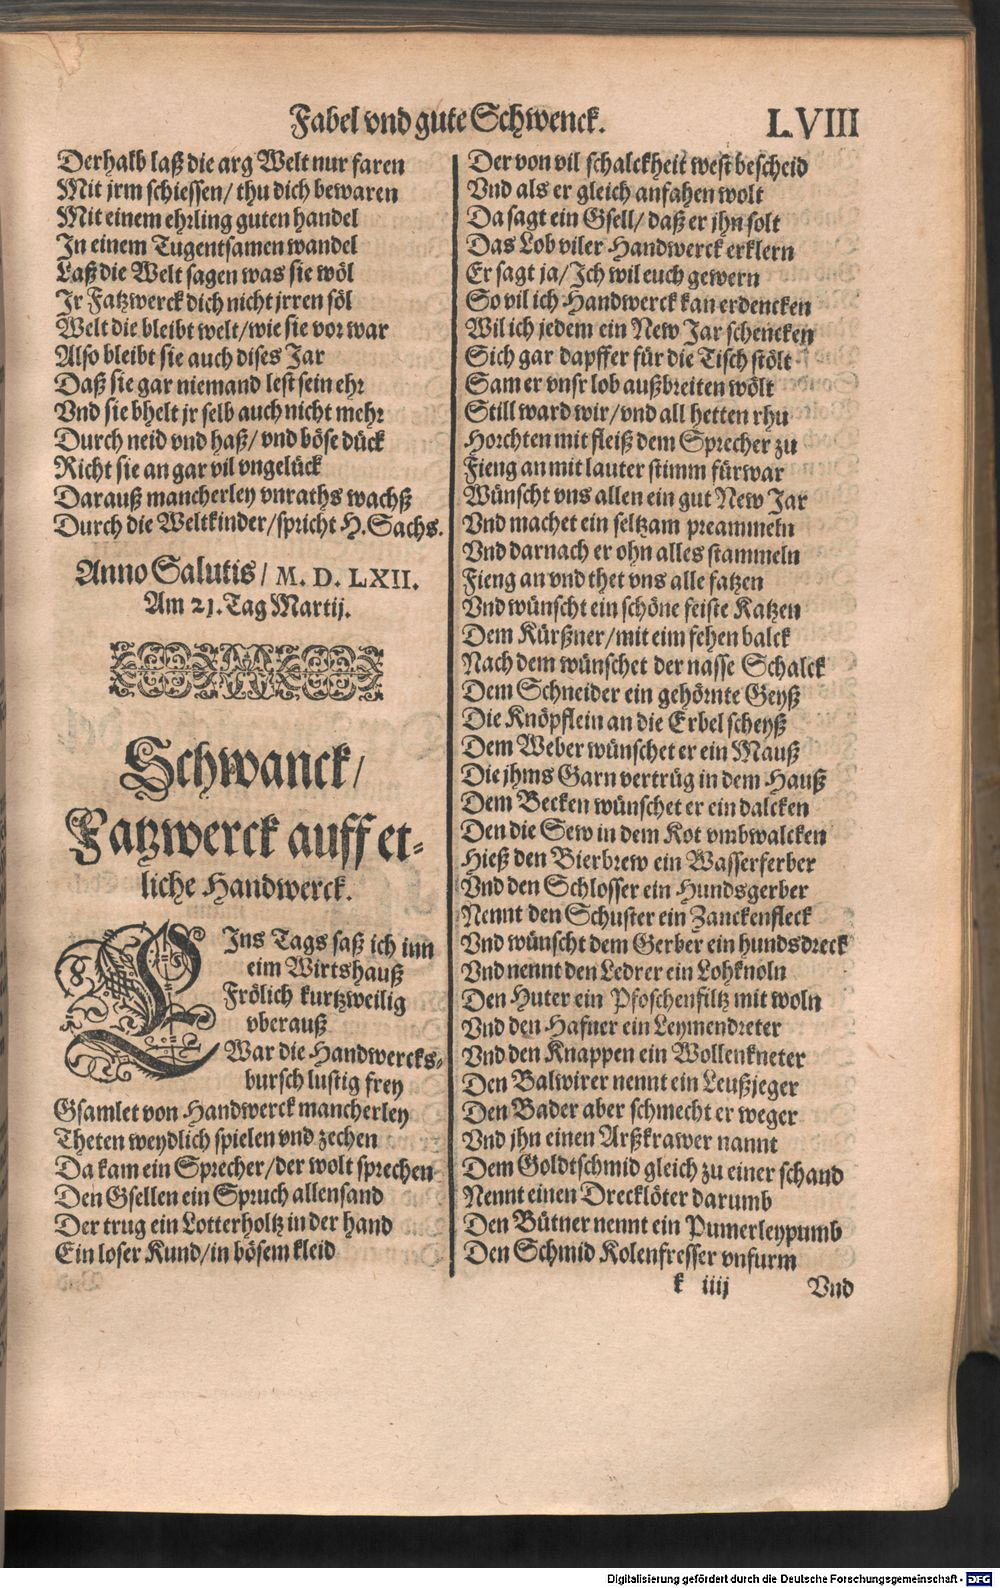 Fabel vnd gute Schwenck. LVIII
Derhalb laß die arg Welt nur faren
Mit jrm schiessen/ thu dich bewaren
Mit einem ehrling guten handel
In einem Tugentsamen wandel
Laß die Welt sagen was sie wöl
Jr Fatzwerck dich nicht jrren söl
Welt die bleibt welt/ wie sie vor war
Also bleibt sie auch dises Jar
Daß sie gar niemand lest sein ehr
Vnd sie bhelt jr selb auch nicht mehr
Durch neid vnd haß/ vnd böse dück
Richt sie an gar vil vngelück
Darauß mancherley vnraths wachß
Durch die Weltkinder/ spricht H. Sachs.
Anno Salutis/ M. D. LXII.
Am 21. Tag Martij.
Schwanck/
Fatzwerck auff et-
liche Handwerck.
EIns Tags saß ich inn
eim Wirtshauß
Frölich kurtzweilig
vberauß
War die Handwercks-
bursch lustig frey
Gsamlet von Handwerck mancherley
Theten weydlich spielen vnd zechen
Da kam ein Sprecher/ der wolt sprechen
Den Gsellen ein Spruch allensand
Der trug ein Lotterholtz in der hand
Ein loser Kund/ in bösem kleid
Der von vil schalckheit west bescheid
Vnd als er gleich anfahen wolt
Da sagt ein Gsell/ daß er jhn solt
Das Lob viler Handwerck erklern
Er sagt ja/ Ich wil euch gewern
So vil ich Handwerck kan erdencken
Wil ich jedem ein New Jar schencken
Sich gar dapffer für die Tisch stölt
Sam er vnsr lob außbreiten wölt
Still ward wir/ vnd all hetten rhu
Horchten mit fleiß dem Sprecher zu
Fieng an mit lauter stimm fürwar
Wünscht vns allen ein gut New Jar
Vnd machet ein seltzam preammeln
Vnd darnach er ohn alles stammeln
Fieng an vnd thet vns alle fatzen
Vnd wünscht ein schöne feiste Katzen
Dem Kürßner/ mit eim fehen balck
Nach dem wünschet der nasse Schalck
Dem Schneider ein gehörnte Geyß
Die Knöpflein an die Erbel scheyß
Dem Weber wünschet er ein Mauß
Die jhms Garn vertrüg in dem Hauß
Dem Becken wünschet er ein dalcken
Den die Sew in dem Kot vmbwalcken
Hieß den Bierbrew ein Wasserferber
Vnd den Schlosser ein Hundsgerber
Nennt den Schuster ein Zanckenfleck
Vnd wünscht dem Gerber ein hundsdreck
Vnd nennt den Ledrer ein Lohknoln
Den Huter ein Pfoschenfiltz mit woln
Vnd den Hafner ein Leymendreter
Vnd den Knappen ein Wollenkneter
Den Balwirer nennt ein Leußjeger
Den Bader aber schmecht er weger
Vnd jhn einen Arßkrawer nannt
Dem Goldtschmid gleich zu einer schand
Nennt einen Drecklöter darumb
Den Bütner nennt ein Pumerleypumb
Den Schmid Kolenfresser vnfurm
k iiij Vnd
Digitalisierung gefördert durch die Deutsche Forschungsgemeinschaft - DFG